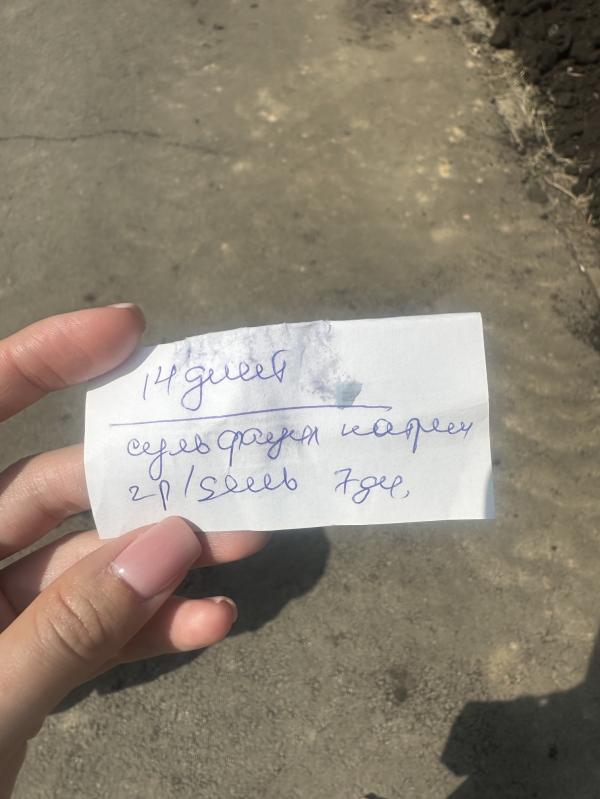 14 дней
сульфацил натрия
2р/день 7дн.